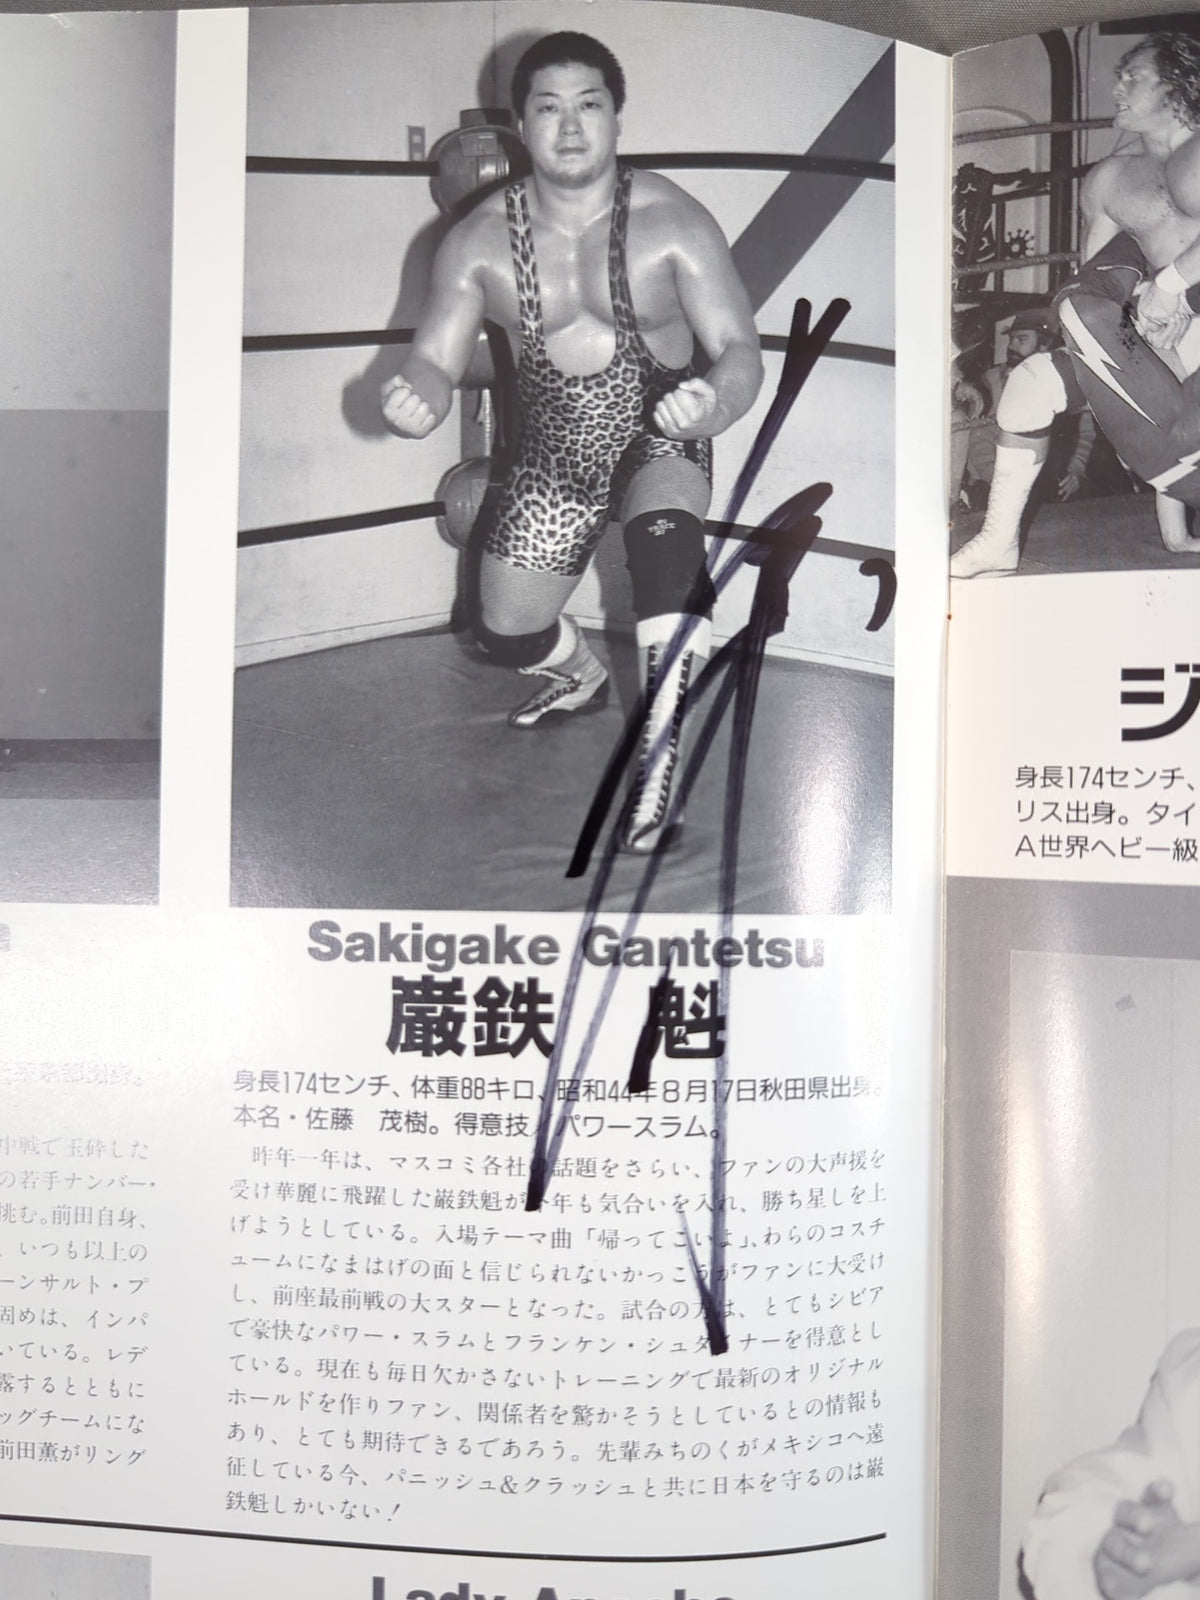 Sakigake Gantetsu
巌鉄 魁
身長174センチ、体重88キロ、昭和44年8月17日秋田県出身。
本名・佐藤 茂樹。得意技／パワースラム。
昨年一年は、マスコミ各社の話題をさらい、ファンの大声援を
受け華麗に飛躍した巌鉄魁が今年も気合いを入れ、勝ち星しを上
げようとしている。入場テーマ曲「帰ってこいよ」、わらのコスチ
ュームになまはげの面と信じられないかっこうがファンに大受け
し、前座最前戦の大スターとなった。試合の方は、とてもシビア
で豪快なパワー・スラムとフランケン・シュタイナーを得意とし
ている。現在も毎日欠かさないトレーニングで最新のオリジナル
ホールドを作りファン、関係者を驚かそうとしているとの情報も
あり、とても期待できるであろう。先輩みちのくがメキシコへ遠
征している今、パニッシュ&クラッシュと共に日本を守るのは巌
鉄魁しかいない！
中戦で玉砕した
の若手ナンバー・
挑む。前田自身、
、いつも以上の
ーンサルト・プ
固めは、インパ
いている。レデ
露するとともに
ッグチームにな
前田薫がリング
ジ
身長174センチ、
リス出身。タイ
A世界ヘビー級